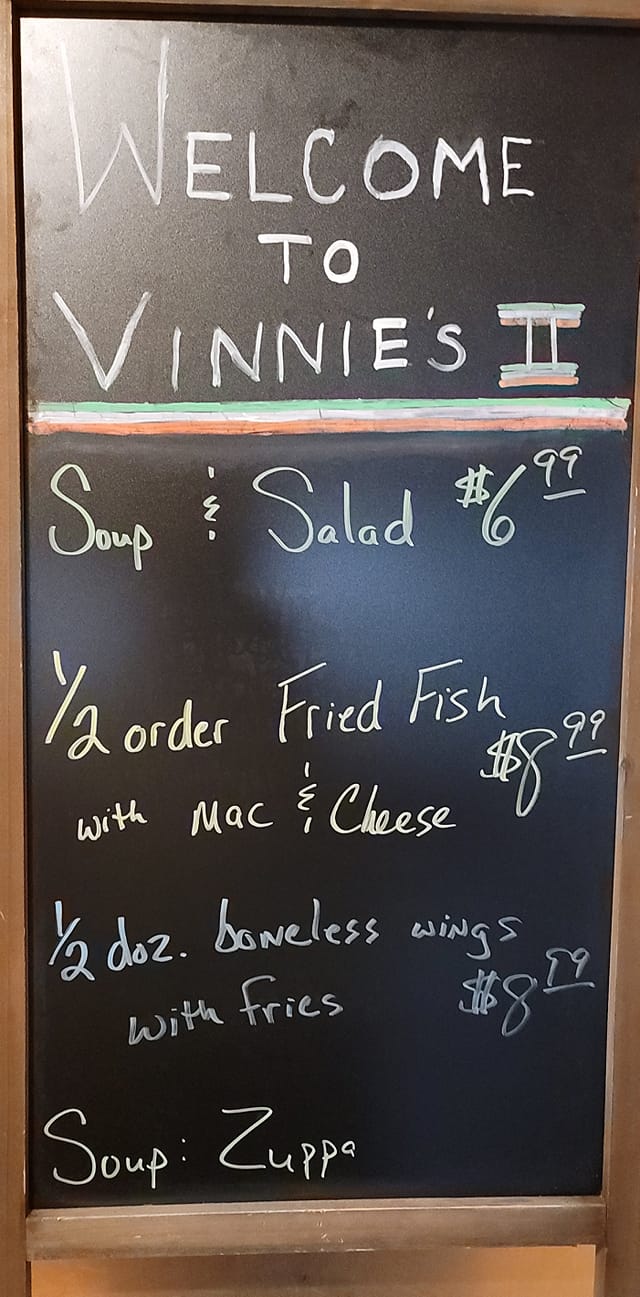 WELCOME
TO
VINNIE'S II
Soup & Salad $6.99
1/2 order Fried Fish
with Mac & Cheese $8.99
1/2 doz. boneless wings
with fries $8.99
Soup: Zuppa